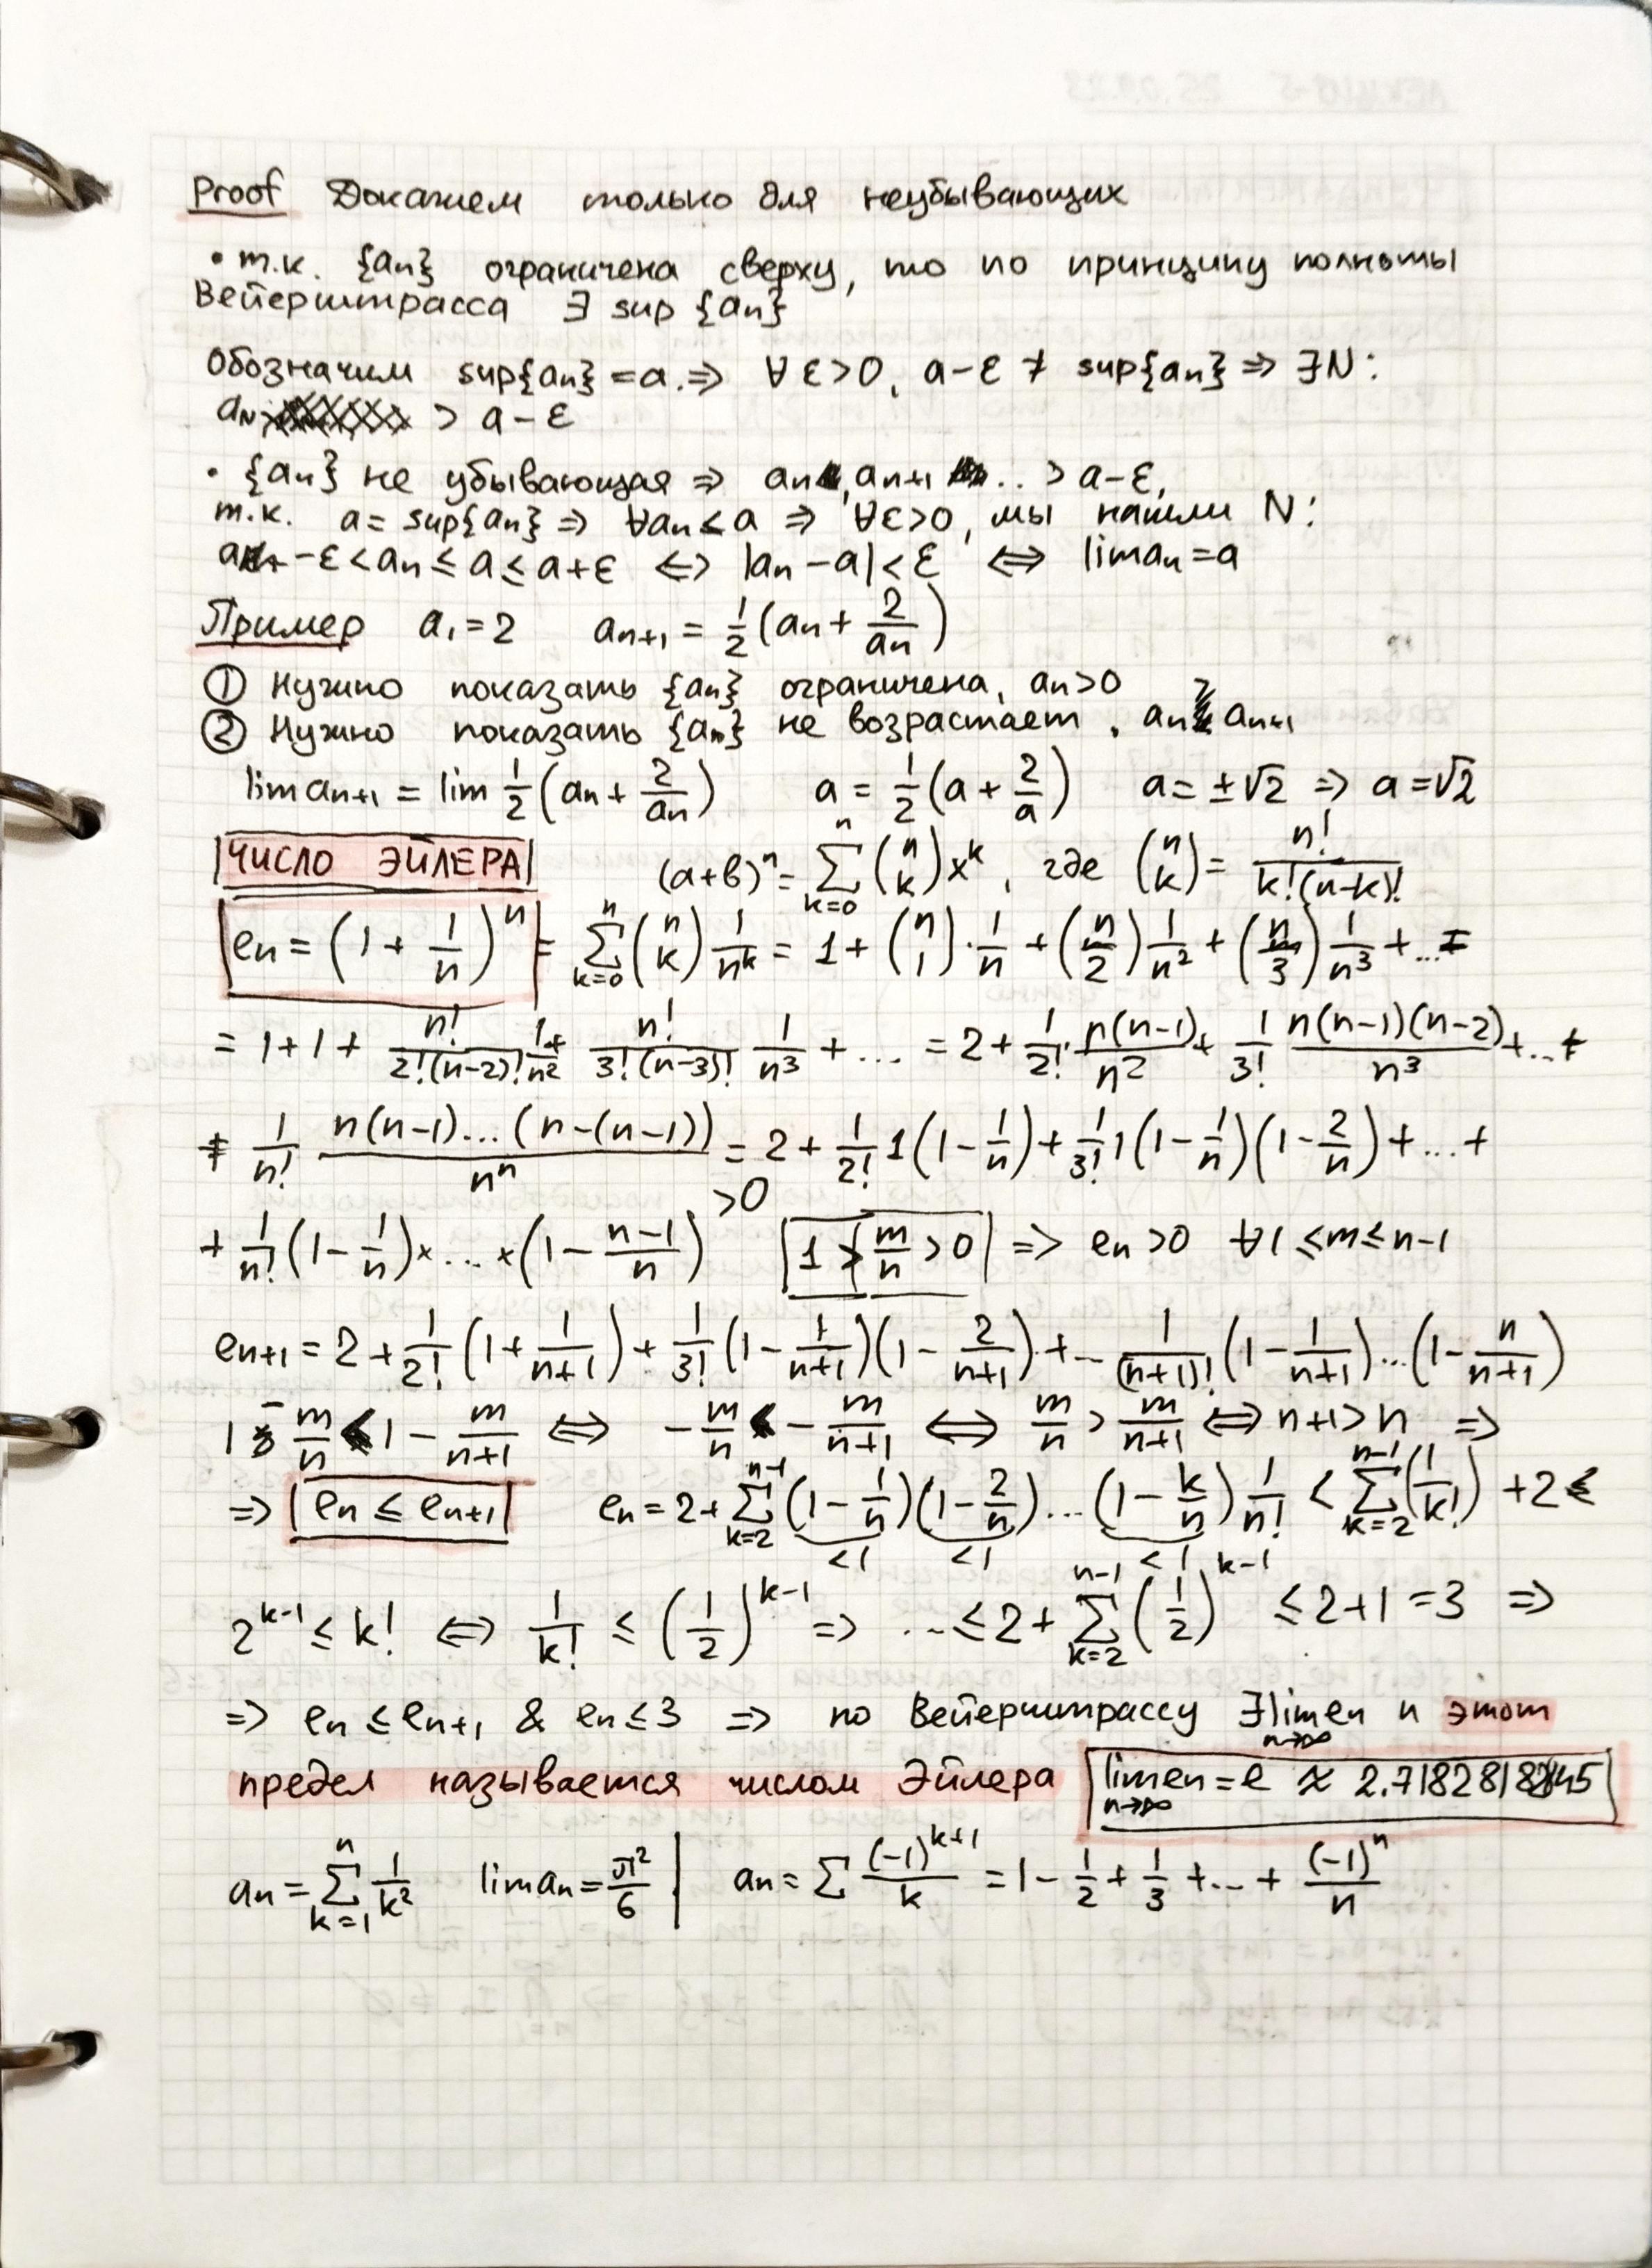 Proof Докажем только для неубывающих
• т.к. {an} ограничена сверху, то по принципу полноты
Вейерштрасса ∃ sup {an}
Обозначим sup{an} = a. ⇒ ∀ ε>0, a-ε ≠ sup{an} ⇒ ∃N:
aN > a-ε
• {an} не убывающая ⇒ an, an+1 ... > a-ε,
т.к. a = sup{an} ⇒ ∀an ≤ a ⇒ ∀ε>0, мы нашли N:
a -ε < an ≤ a ≤ a+ε ⇔ |an - a| < ε ⇔ lim an = a
Пример a1 = 2 an+1 = 1/2 (an + 2/an)
① Нужно показать {an} ограничена, an>0
② Нужно показать {an} не возрастает, an ≥ an+1
lim an+1 = lim 1/2 (an + 2/an) a = 1/2 (a + 2/a) a = ±√2 ⇒ a = √2
ЧИСЛО ЭЙЛЕРА (a+b)^n = ∑_{k=0}^{n} (n k) x^k, где (n k) = n!/(k!(n-k)!)
en = (1 + 1/n)^n = ∑_{k=0}^{n} (n k) 1/n^k = 1 + (n 1)·1/n + (n 2) 1/n^2 + (n 3) 1/n^3 + ... =
= 1+1+ n!/(2!(n-2)!) 1/n^2 + n!/(3!(n-3)!) 1/n^3 + ... = 2 + 1/2! · n(n-1)/n^2 + 1/3! n(n-1)(n-2)/n^3 + ... +
+ 1/n! n(n-1)...(n-(n-1))/n^n = 2 + 1/2! 1(1-1/n) + 1/3! 1(1-1/n)(1-2/n) + ... +
+ 1/n! (1-1/n)×...×(1-(n-1)/n) >0 1 > m/n > 0 ⇒ en > 0 ∀1 ≤ m ≤ n-1
en+1 = 2 + 1/2! (1+1/(n+1)) + 1/3! (1-1/(n+1))(1-2/(n+1)) + ... 1/(n+1)! (1-1/(n+1))...(1-n/(n+1))
1 - m/n < 1 - m/(n+1) ⇔ -m/n < -m/(n+1) ⇔ m/n > m/(n+1) ⇔ n+1 > n ⇒
⇒ en ≤ en+1 en = 2 + ∑_{k=2}^{n-1} (1-1/n)(1-2/n)...(1-k/n) 1/n! < ∑_{k=2}^{n-1} (1/k!) + 2 ≤
<1 <1 <1
2^{k-1} ≤ k! ⇔ 1/k! ≤ (1/2)^{k-1} ⇒ ... ≤ 2 + ∑_{k=2}^{n-1} (1/2)^{k-1} ≤ 2+1 = 3 ⇒
⇒ en ≤ en+1 & en ≤ 3 ⇒ по Вейерштрассу ∃ lim_{n→∞} en и этот
предел называется числом Эйлера lim_{n→∞} en = e ≈ 2.71828182845
an = ∑_{k=1}^{n} 1/k^2 lim an = π^2/6 | an = ∑ (-1)^{k+1}/k = 1 - 1/2 + 1/3 + ... + (-1)^n/n